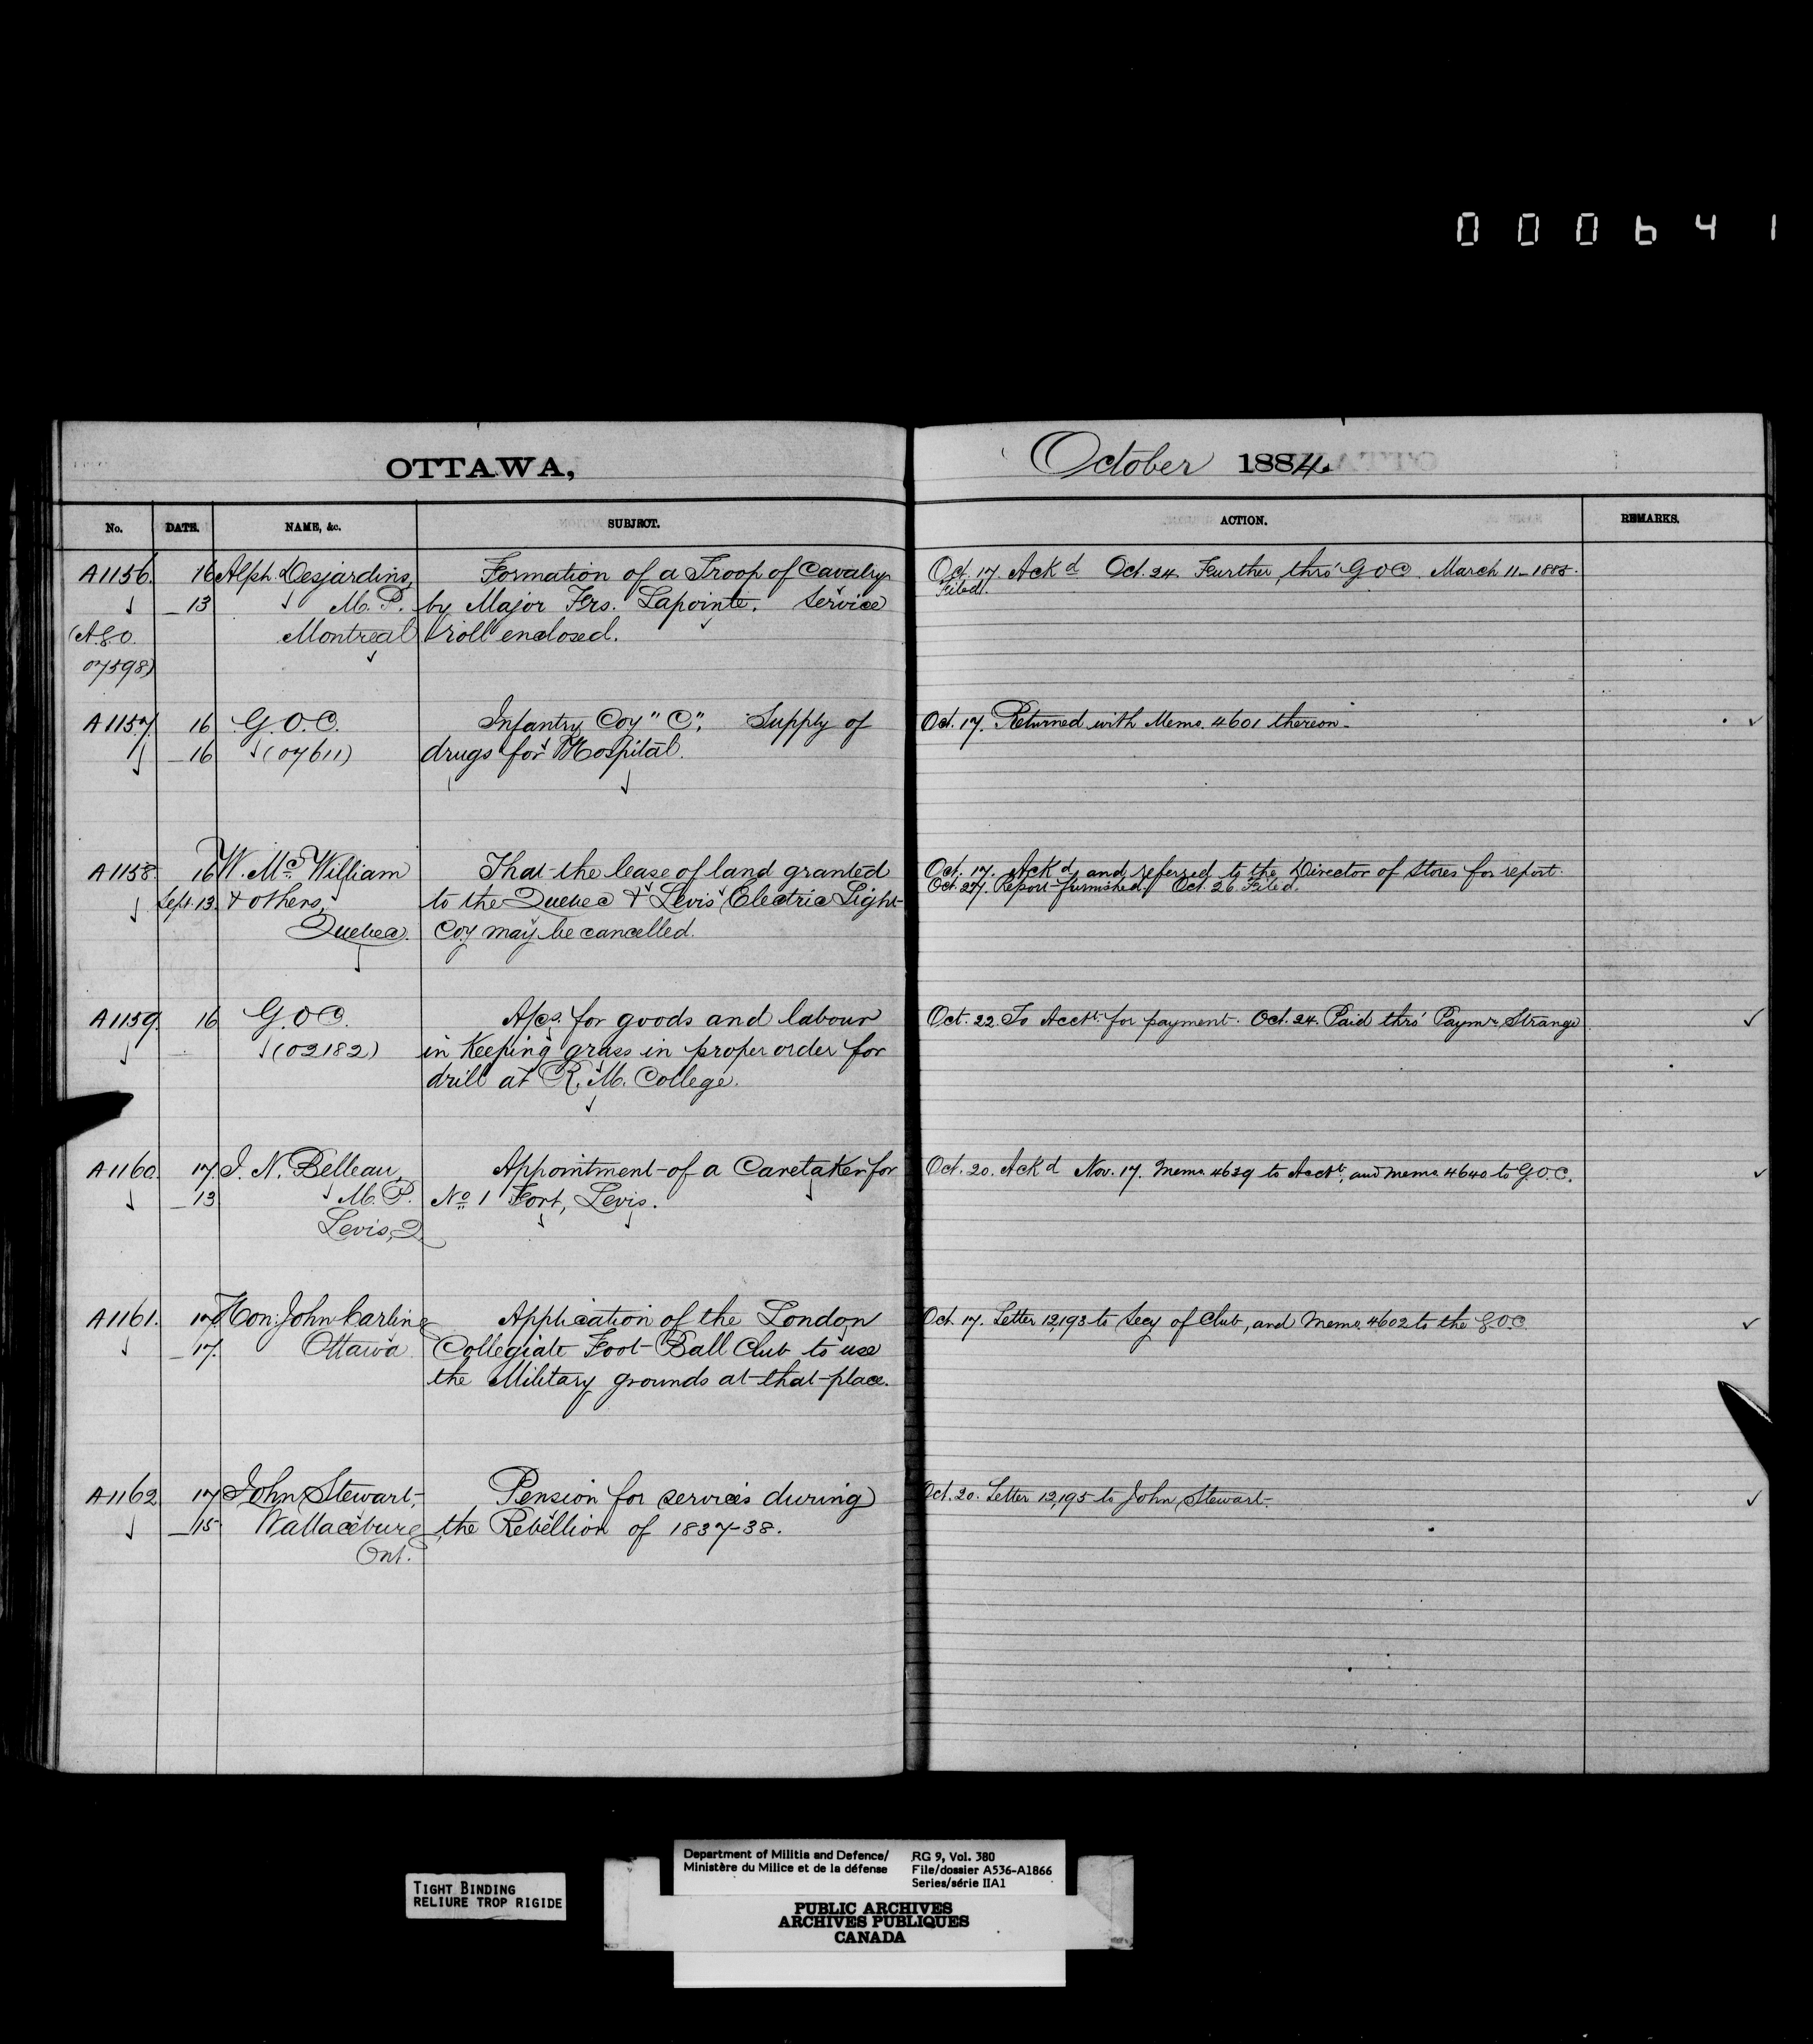 000641
OTTAWA,
October 1884.
No. DATE. NAME, &c. SUBJECT. ACTION. REMARKS.
A1156. 16 Alph. Desjardins, Formation of a Troop of Cavalry Oct. 17. Ackd Oct. 24. Further thro' GOC. March 11-1885.
13 M.P. by Major Frs. Lapointe. Service Filed.
(A.G.O. Montreal roll enclosed.
07598)
A1157. 16 G.O.C. Infantry Coy "C". Supply of Oct. 17. Returned with Memo. 4601 thereon.
16 (07611) drugs for Hospital.
A1158. 16 W. Mc William That the lease of land granted Oct. 17. Ackd, and referred to the Director of Stores for report.
Sept. 13. & others, to the Quebec & Levis Electric Light Oct. 27. Report furnished. Oct. 26 Filed.
Quebec. Coy may be cancelled.
A1159. 16 G.O.C. A/cs. for goods and labour Oct. 22. To Acctt. for payment. Oct. 24. Paid thro' Paymr. Strange
(02182) in Keeping grass in proper order for
drill at R. M. College.
A1160. 17. I. N. Belleau, Appointment of a Caretaker for Oct. 20. Ackd Nov. 17. Memo. 4639 to Acctt., and memo. 4640 to G.O.C.
13 M.P. No 1 Fort, Levis.
Levis, Q
A1161. 17. Hon: John Carling Application of the London Oct. 17. Letter 12,193 to Secy of Club, and Memo. 4602 to the G.O.C.
17. Ottawa Collegiate Foot-Ball Club to use
the Military grounds at that place.
A1162 17 John Stewart, Pension for services during Oct. 20. Letter 12,195 to John Stewart.
15 Wallaceburg the Rebellion of 1837-38.
Ont.
TIGHT BINDING
RELIURE TROP RIGIDE
Department of Militia and Defence/ RG 9, Vol. 380
Ministère du Milice et de la défense File/dossier A536-A1866
Series/série IIA1
PUBLIC ARCHIVES
ARCHIVES PUBLIQUES
CANADA